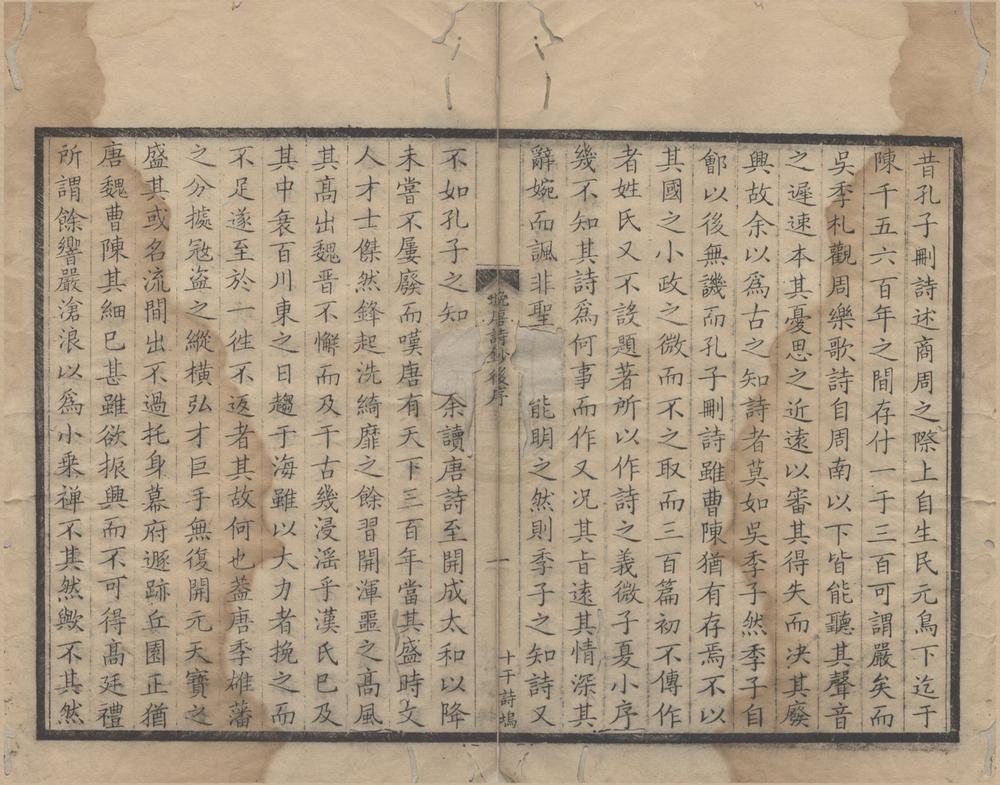 昔孔子刪詩述商周之際上自生民元鳥下迄于
陳千五六百年之間存什一于三百可謂嚴矣而
吳季札觀周樂歌詩自周南以下皆能聽其聲音
之遲速本其憂思之近遠以審其得失而决其廢
興故余以爲古之知詩者莫如吳季子然季子自
鄶以後無譏而孔子刪詩雖曹陳猶有存焉不以
其國之小政之微而不之取而三百篇初不傳作
者姓氏又不設題著所以作詩之義微子夏小序
幾不知其詩爲何事而作又况其旨遠其情深其
辭婉而諷非聖能明之然則季子之知詩又
晚唐詩鈔後序
一
十干詩塢
不如孔子之知余讀唐詩至開成太和以降
未嘗不屢廢而嘆唐有天下三百年當其盛時文
人才士傑然鋒起洗綺靡之餘習開渾噩之高風
其高出魏晉不懈而及于古幾浸滛乎漢氏巳及
其中衰百川東之日趨于海雖以大力者挽之而
不足遂至於一徃不返者其故何也蓋唐季雄藩
之分據冦盗之縱橫弘才巨手無復開元天寶之
盛其或名流間出不過托身幕府遯跡丘園正猶
唐魏曹陳其細巳甚雖欲振興而不可得高廷禮
所謂餘響嚴滄浪以爲小乗禅不其然歟不其然